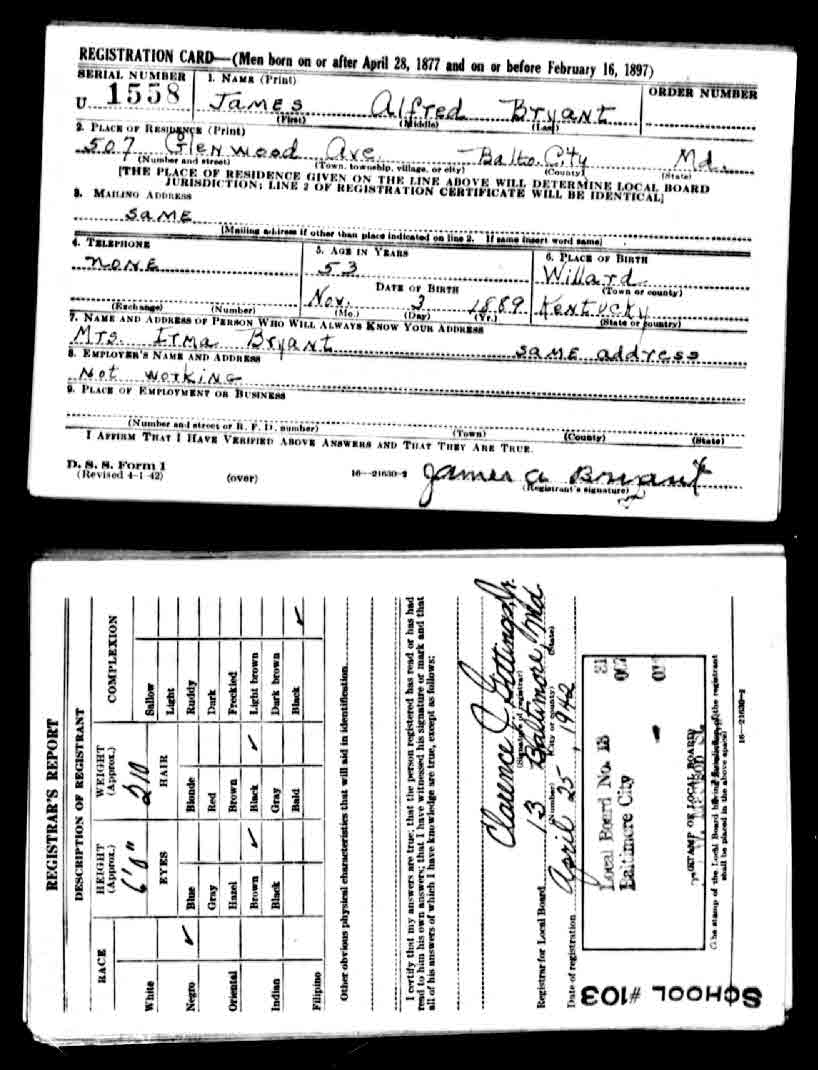 REGISTRATION CARD—(Men born on or after April 28, 1877 and on or before February 16, 1897)
SERIAL NUMBER 1. NAME (Print) ORDER NUMBER
U 1558 James Alfred Bryant
(First) (Middle) (Last)
2. PLACE OF RESIDENCE (Print)
507 Glenwood Ave. Balto. City Md.
(Number and street) (Town, township, village, or city) (County) (State)
[THE PLACE OF RESIDENCE GIVEN ON THE LINE ABOVE WILL DETERMINE LOCAL BOARD
JURISDICTION; LINE 2 OF REGISTRATION CERTIFICATE WILL BE IDENTICAL]
3. MAILING ADDRESS
same
[Mailing address if other than place indicated on line 2. If same insert word same]
4. TELEPHONE 5. AGE IN YEARS 6. PLACE OF BIRTH
none 53 Willard
DATE OF BIRTH (Town or county)
Nov. 3 1889 Kentucky
(Exchange) (Number) (Mo.) (Day) (Yr.) (State or country)
7. NAME AND ADDRESS OF PERSON WHO WILL ALWAYS KNOW YOUR ADDRESS
Mrs. Irma Bryant same address
8. EMPLOYER'S NAME AND ADDRESS
Not working
9. PLACE OF EMPLOYMENT OR BUSINESS
(Number and street or R. F. D. number) (Town) (County) (State)
I AFFIRM THAT I HAVE VERIFIED ABOVE ANSWERS AND THAT THEY ARE TRUE.
D. S. S. Form 1
(Revised 4-1-42) (over) 16—21630-2 James A Bryant
(Registrant's signature)
REGISTRAR'S REPORT
DESCRIPTION OF REGISTRANT
RACE HEIGHT (Approx.) WEIGHT (Approx.) COMPLEXION
6'0" 210
EYES HAIR
White Sallow
Light
Negro ✓ Blue Blonde Ruddy
Gray Red Dark
Oriental Hazel Brown Freckled
Brown ✓ Black ✓ Light brown
Indian Black Gray Dark brown
Bald Black ✓
Filipino
Other obvious physical characteristics that will aid in identification
I certify that my answers are true; that the person registered has read or has had
read to him his own answers; that I have witnessed his signature or mark and that
all of his answers of which I have knowledge are true, except as follows:
Clarence C Gittings Jr.
(Signature of registrar)
Registrar for Local Board 13 Baltimore, Md
(Number) (City or county) (State)
Date of registration April 25, 1942
Local Board No. 13
Baltimore City
(STAMP OF LOCAL BOARD)
(The stamp of the Local Board having jurisdiction of the registrant
shall be placed in the above space)
16—21630-2
SCHOOL #103